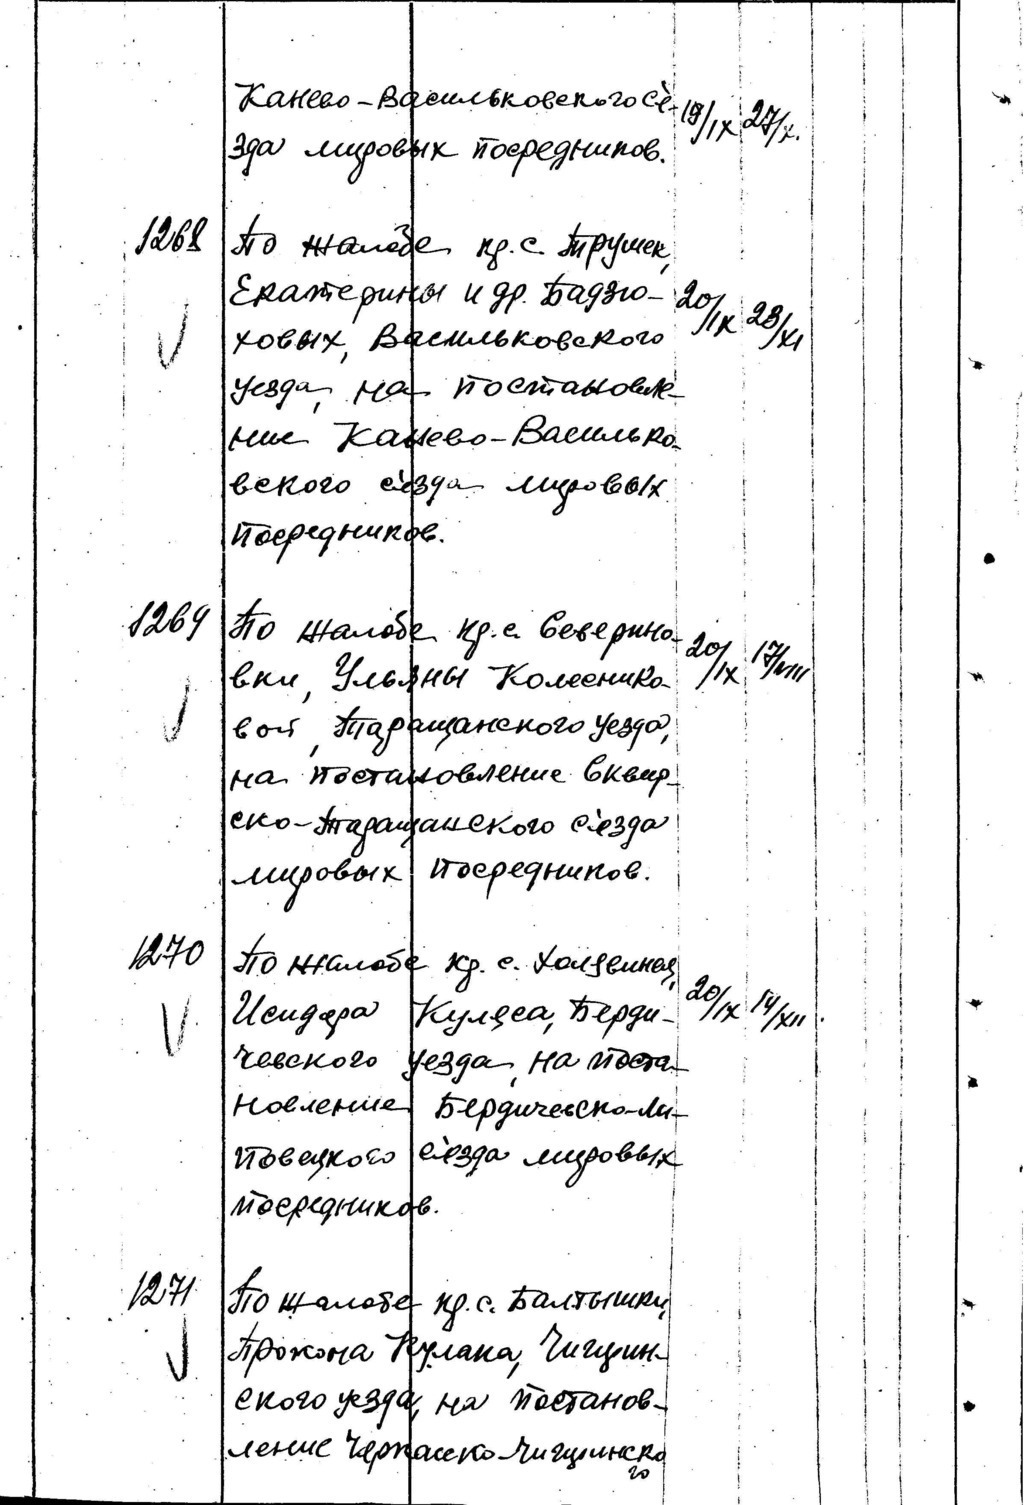 Канево-Васильковского съе- 19/IX 27/X.
зда мировых посредников.
1268 По жалобе кр. с. Трушек,
Екатерины и др. Бадзю- 20/IX 23/XI
ховых, Васильковского
уезда, на постановле-
ние Канево-Василько-
вского съезда мировых
посредников.
1269 По жалобе кр. с. Северино- 20/IX 17/VIII
вки, Ульяны Колеснико-
вой, Таращанского уезда,
на постановление Сквир-
ско-Таращанского съезда
мировых посредников.
1270 По жалобе кр. с.
Исидора Берди- 20/IX 14/XII.
чевского уезда, на поста-
новление Бердичевско-Ли-
повецкого съезда мировых
посредников.
1271 По жалобе кр. с. Балтышки,
Прокопа Кулака, Чигирин-
ского уезда, на постанов-
ление Черкасско-Чигиринско
го